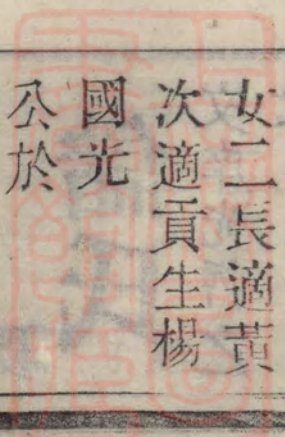 女二長適黄
次適貢生楊
國光
公於